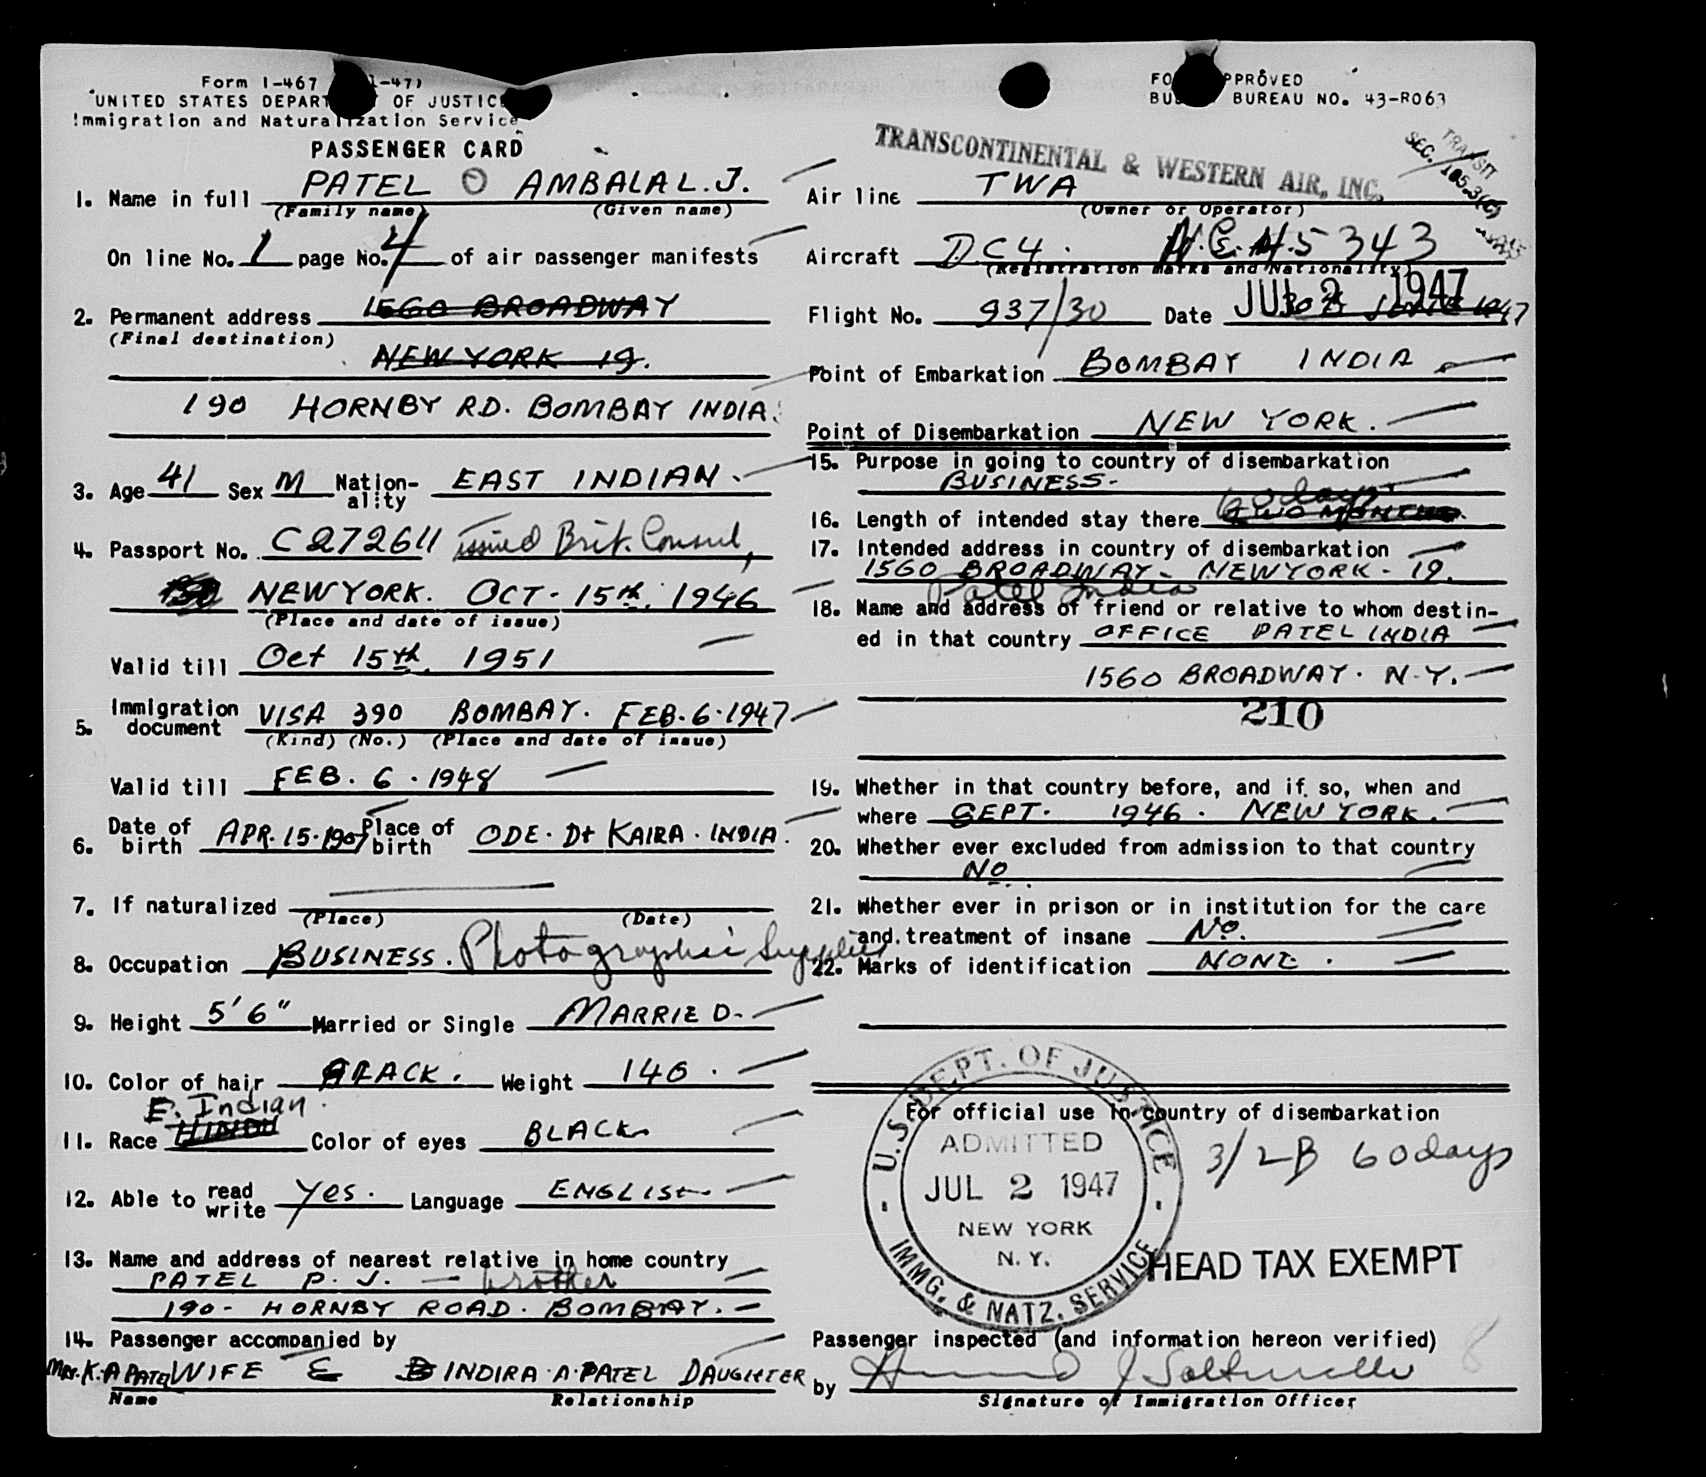 Form I-467 -47)
UNITED STATES DEPAR OF JUSTICE
Immigration and Naturalization Service
PASSENGER CARD
1. Name in full PATEL AMBALAL. J.
(Family name) (Given name)
On line No. 1 page No. 4 of air passenger manifests
2. Permanent address 1560 BROADWAY
(Final destination)
NEW YORK 19.
190 HORNBY RD. BOMBAY INDIA.
3. Age 41 Sex M Nation-ality EAST INDIAN.
4. Passport No. C272611 issued Brit. Consul,
NEW YORK. OCT. 15th. 1946
(Place and date of issue)
Valid till Oct 15th. 1951
5. Immigration document VISA 390 BOMBAY. FEB. 6. 1947
(Kind) (No.) (Place and date of issue)
Valid till FEB. 6. 1948
6. Date of birth APR. 15. 1907 Place of birth ODE. Dt KAIRA. INDIA.
7. If naturalized
(Place) (Date)
8. Occupation BUSINESS. Photographic Supplies
9. Height 5'6" Married or Single MARRIED.
10. Color of hair BLACK. Weight 140.
E. Indian.
11. Race HINDU Color of eyes BLACK
12. Able to read write Yes. Language ENGLISH
13. Name and address of nearest relative in home country
PATEL P. J. — brother
190 - HORNBY ROAD. BOMBAY. -
14. Passenger accompanied by
Mrs. K. A PATEL WIFE & INDIRA. A. PATEL DAUGHTER
Name Relationship
FO PPROVED
BU BUREAU NO. 43-R063
TRANSCONTINENTAL & WESTERN AIR, INC.
TRANSIT
SEC.
Air line TWA
(Owner or Operator)
Aircraft DC4. N.C. 45343
(Registration marks and Nationality)
Flight No. 937/30 Date JUL 2 1947
Point of Embarkation BOMBAY INDIA
Point of Disembarkation NEW YORK.
15. Purpose in going to country of disembarkation
BUSINESS.
16. Length of intended stay there 60 days TWO MONTHS.
17. Intended address in country of disembarkation
1560 BROADWAY - NEW YORK - 19.
Patel India
18. Name and address of friend or relative to whom destin-
ed in that country OFFICE PATEL INDIA
1560 BROADWAY. N.Y.
210
19. Whether in that country before, and if so, when and
where SEPT. 1946. NEW YORK.
20. Whether ever excluded from admission to that country
No
21. Whether ever in prison or in institution for the care
and treatment of insane No.
22. Marks of identification NONE.
For official use in country of disembarkation
U.S. DEPT. OF JUSTICE
ADMITTED
JUL 2 1947
NEW YORK
N. Y.
IMMG. & NATZ. SERVICE
3/2B 60 days
HEAD TAX EXEMPT
Passenger inspected (and information hereon verified)
8
by
Signature of Immigration Officer